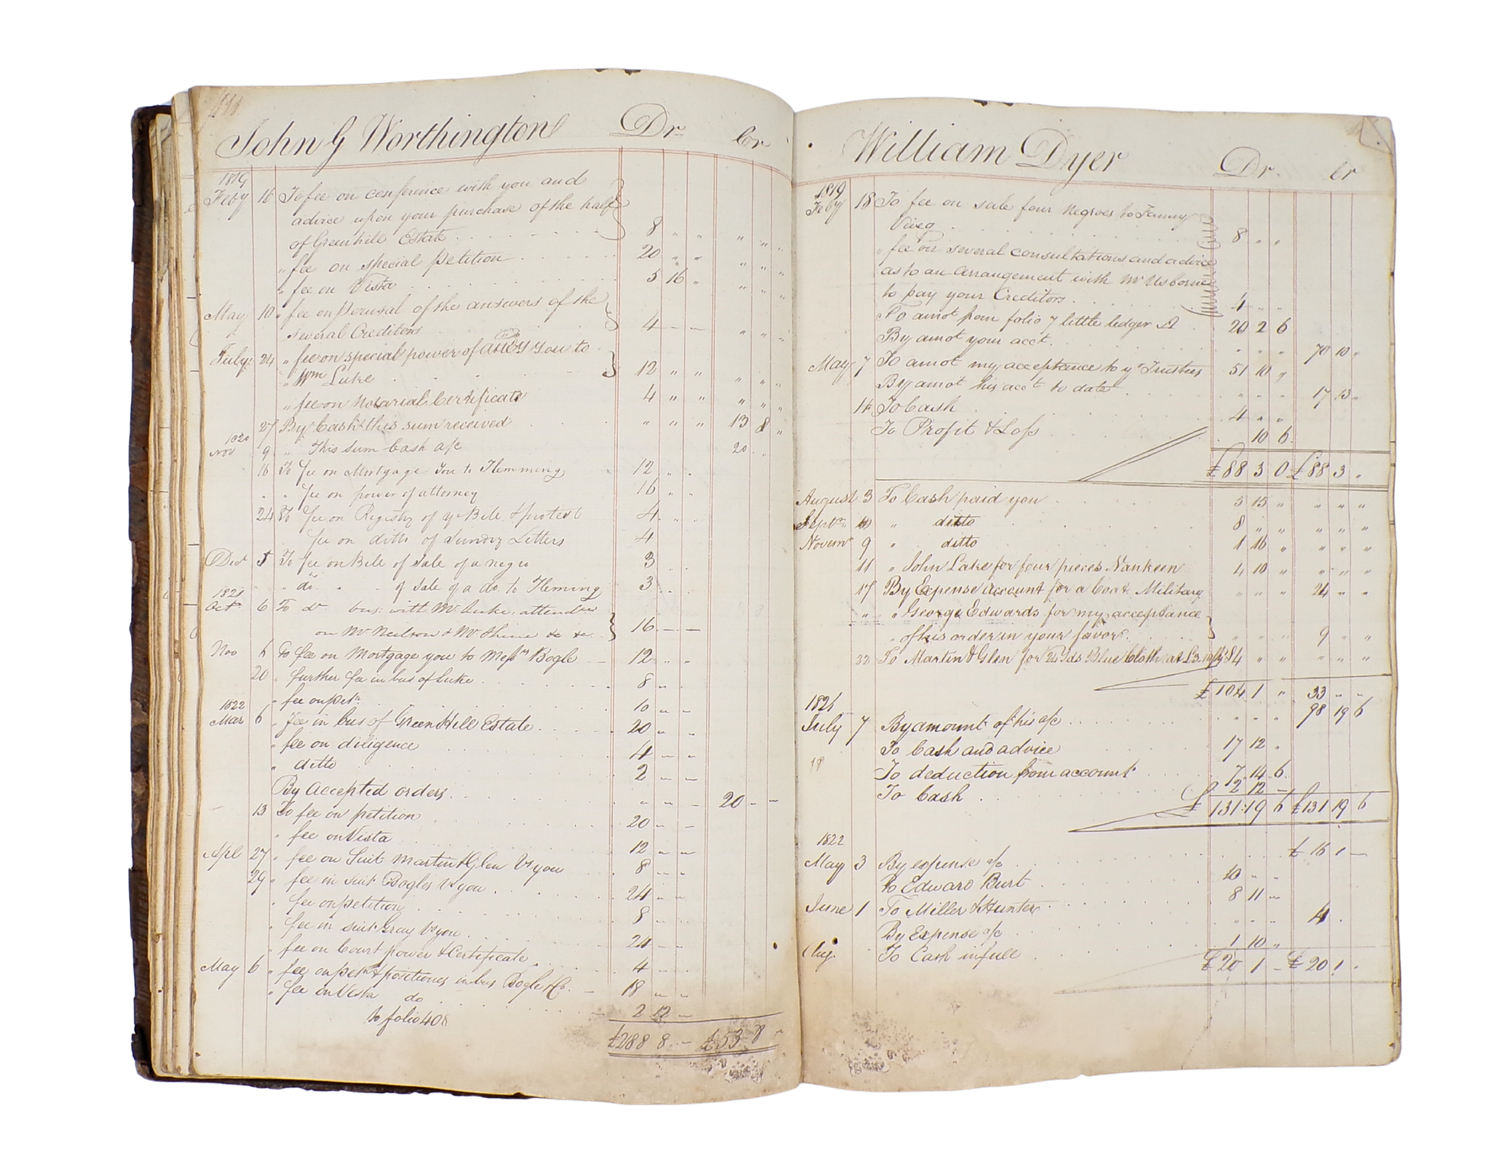 John G Worthington Dr. Cr
1819
Feby 16 To fee on conference with you and
advice upon your purchase of the half
of Greenhill Estate 8 " " " " "
" fee on special petition 20 " " " " "
" fee on Vista 5 16 " " " "
May 10 " fee on perusal of the answers of the
several Creditors 4 — — " " "
July 24 " fee on special power of atty you to
" Wm Luke 12 " " " " "
" fee on Notarial Certificate 4 " " " " "
27 By Cash this sum received " " " 13 8 "
1820
Nov 9 " This sum Cash a/c 20
16 To fee on Mortgage you to Flemming 12
" fee on power of attorney 16
24 To fee on Registry of ye Bill & protest 4
fee on ditto of Sundry Letters 4
Decr 5 To fee on Bill of Sale of a negro 3
" do - of sale of a do to Fleming 3
1821
Octr 6 To do bus. with Mr Luke, attendce
on Mr Neilson & Mr Shine &c &c 16 — —
Nov 6 To fee on Mortgage you to Messrs Bogle 12
20 " further fee in bus of Luke 8
" fee on petn. 10
1822
Mar 6 " Fee in bus of Green Hill Estate 20 — —
" fee on diligence 4 — —
" ditto 2 — —
By Accepted orders 20 — —
13 To fee on petition 20 — —
" fee on Vista 12 — —
Apl 27 " fee on Suit Martin & Glen Vs you 8 — —
29 " fee in suit Bogles Vs you 24 — —
" fee on petition 8 — —
" fee in suit Gray Vs you 24 — —
" fee on Court power & Certificate 4 — —
May 6 " fee on petn & positiones in bus Bogle & Co. 18 — —
" fee on Vista do 2 12 —
to folio 408
£288 8 — £53 8
William Dyer Dr. Cr
1819
Feby 18 To fee on sale four Negroes to Fanny
8 " "
" fee on several consultations and advice
as to an Arrangement with Mr Usborne
to pay your Creditors 4
To amot from folio 7 little ledger A 20 2 6
By amot your acct. 70 10 "
May 7 To amot my acceptance to ye Trustees 51 10 "
By amot his acct to date 17 13
14 To Cash 4 " "
To Profit & Loss 10 6
£88 3 0 £88 3 "
August 3 To Cash paid you 5 15 " " " "
Septr 10 " ditto 8 " " " " "
Novemr 9 " ditto 1 16 " " " "
11 " John Lake for four pieces Nankeen 4 10 " " " "
17 By Expense Account for a Coat, Military " " " 24 " "
" " George Edwards for my acceptance
" of his order in your favor 9 " "
22 To Martin & Glen for Yds Blue Cloth at 84 " " " " "
£104 1 " 33 " "
1821
July 7 By amount of his a/c 98 19 6
To Cash and advice 17 12 "
18 To deduction from account 7 14 6
To Cash 2 12 —
£131 19 6 £131 19 6
1822
£ 16 1 —
May 3 By expense a/c
To Edward Burt 10 " "
June 1 To Miller & Hunter 8 11 —
By Expense a/c 4
Aug. To Cash in full 1 10 "
£20 1 — £20 1 "